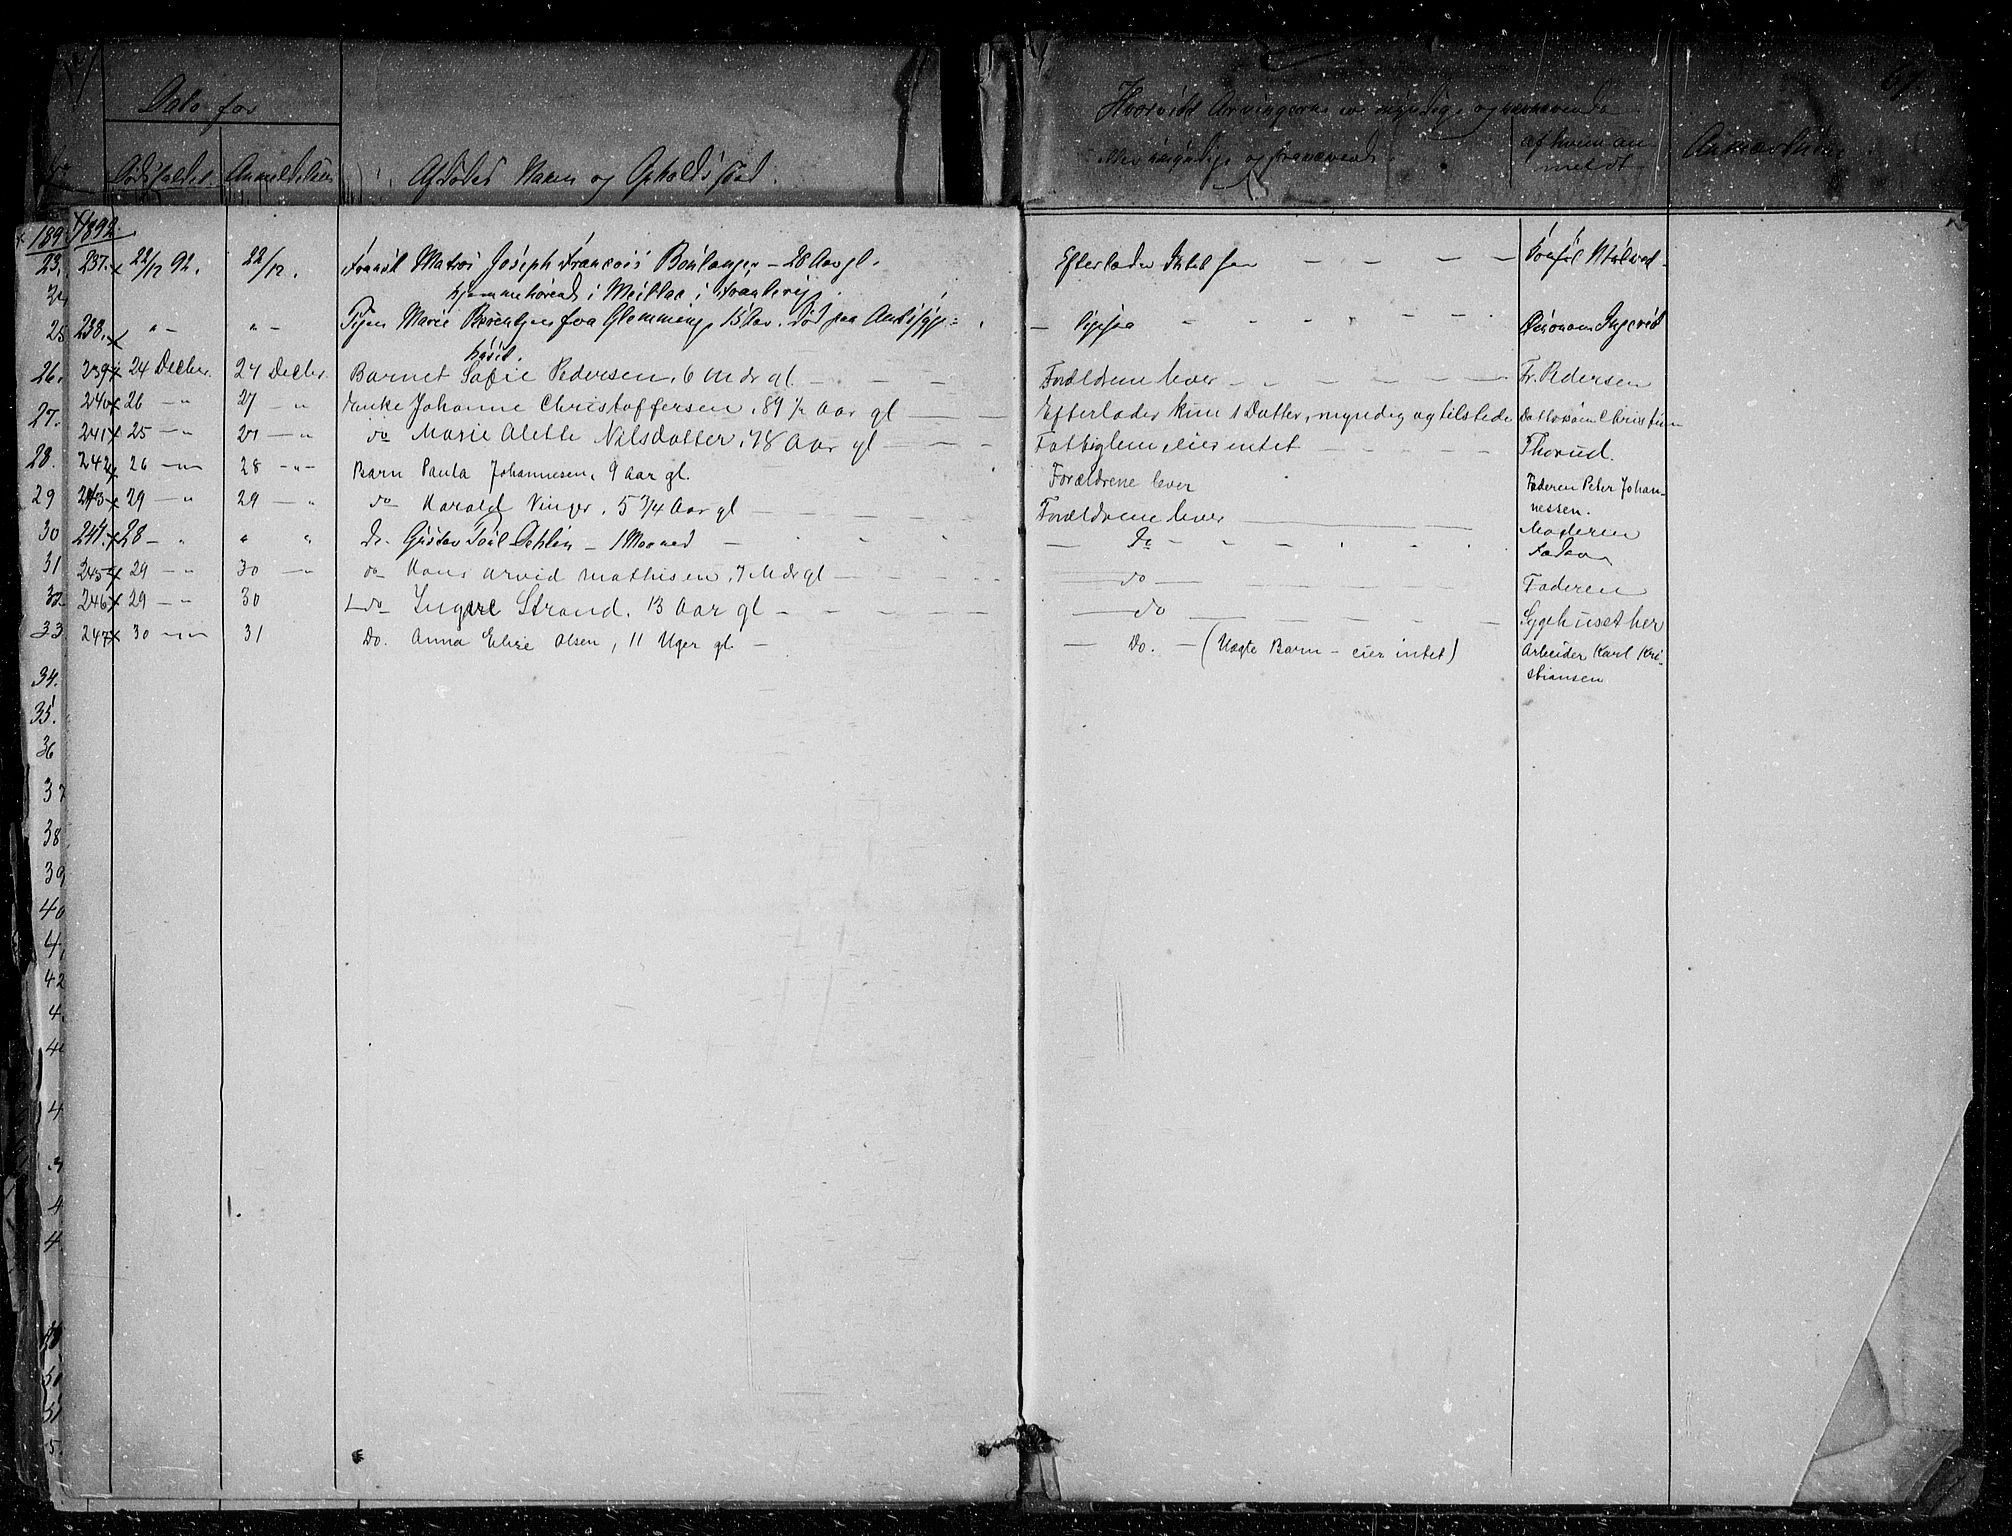 67.
Dato for
Hvorvidt Arvingerne ere myndige og nærværende
Dødsfaldet. Anmeldelsen Afdødes Navn og Opholdssted.
eller umyndige og fraværende.
af hvem an-
meldt
Anmærkning
1892.
23. 237. x 22/12 92. 22/12. Fransk Matros Joseph Francois Boulanger – 28 Aar gl. Efterlader Intet her – – – – Konsul Stålsed
hjemmehørende i Meillac i Frankrig.
25 238. x " – " – Pigen Marie Berentsen fra Glemminge 13 Aar. Død paa Amtssyge- – ligesaa – – – – – – Økonom Ingerid
huset.
26. 239 x 24 Decbr. 24 Decbr. Barnet Sofie Pedersen, 6 Mdr gl. – – – Forældrene lever – – – – – Fr. Pedersen
27. 240 x 26 – " 27 – " Enke Johanne Christoffersen, 89 1/2 Aar gl – – Efterlader kun 1 Datter, myndig og tilstede
241 x 25 – " 27 – " do Marie Alette Nilsdatter, 78 Aar gl – – – Fattiglem, eier intet – – – – – Thorud.
28. 242 x 26 – " – 28 – " – Barn Paula Johannesen, 9 Aar gl. Forældrene lever Faderen Peter Johan-
nessen.
29 243 x 29 – " 29 – " do Harald Vinger, 5 3/4 Aar gl – – – Forældrene lever – – Moderen
30 244. x 28 – " " " Do. Gustav Poul Dahlin – 1 Maaned – – – – – Do – – – – – Faderen
31 245 x 29 – " 30 – " do Hans Arvid Mathisen, 7 Mdr gl – – – – do – – – – Faderen
32 246 x 29 – " 30 do Ingvel Strand, 13 Aar gl – – – – do – – – – Sygehuset her
33 247 x 30 – " – 31 Do. Anna Elise Olsen, 11 Uger gl. – – Do. – (Uægte Barn – eier intet) Arbeider Karl Kri-
stiansen
34.
35.
36
37
38
39
40
42